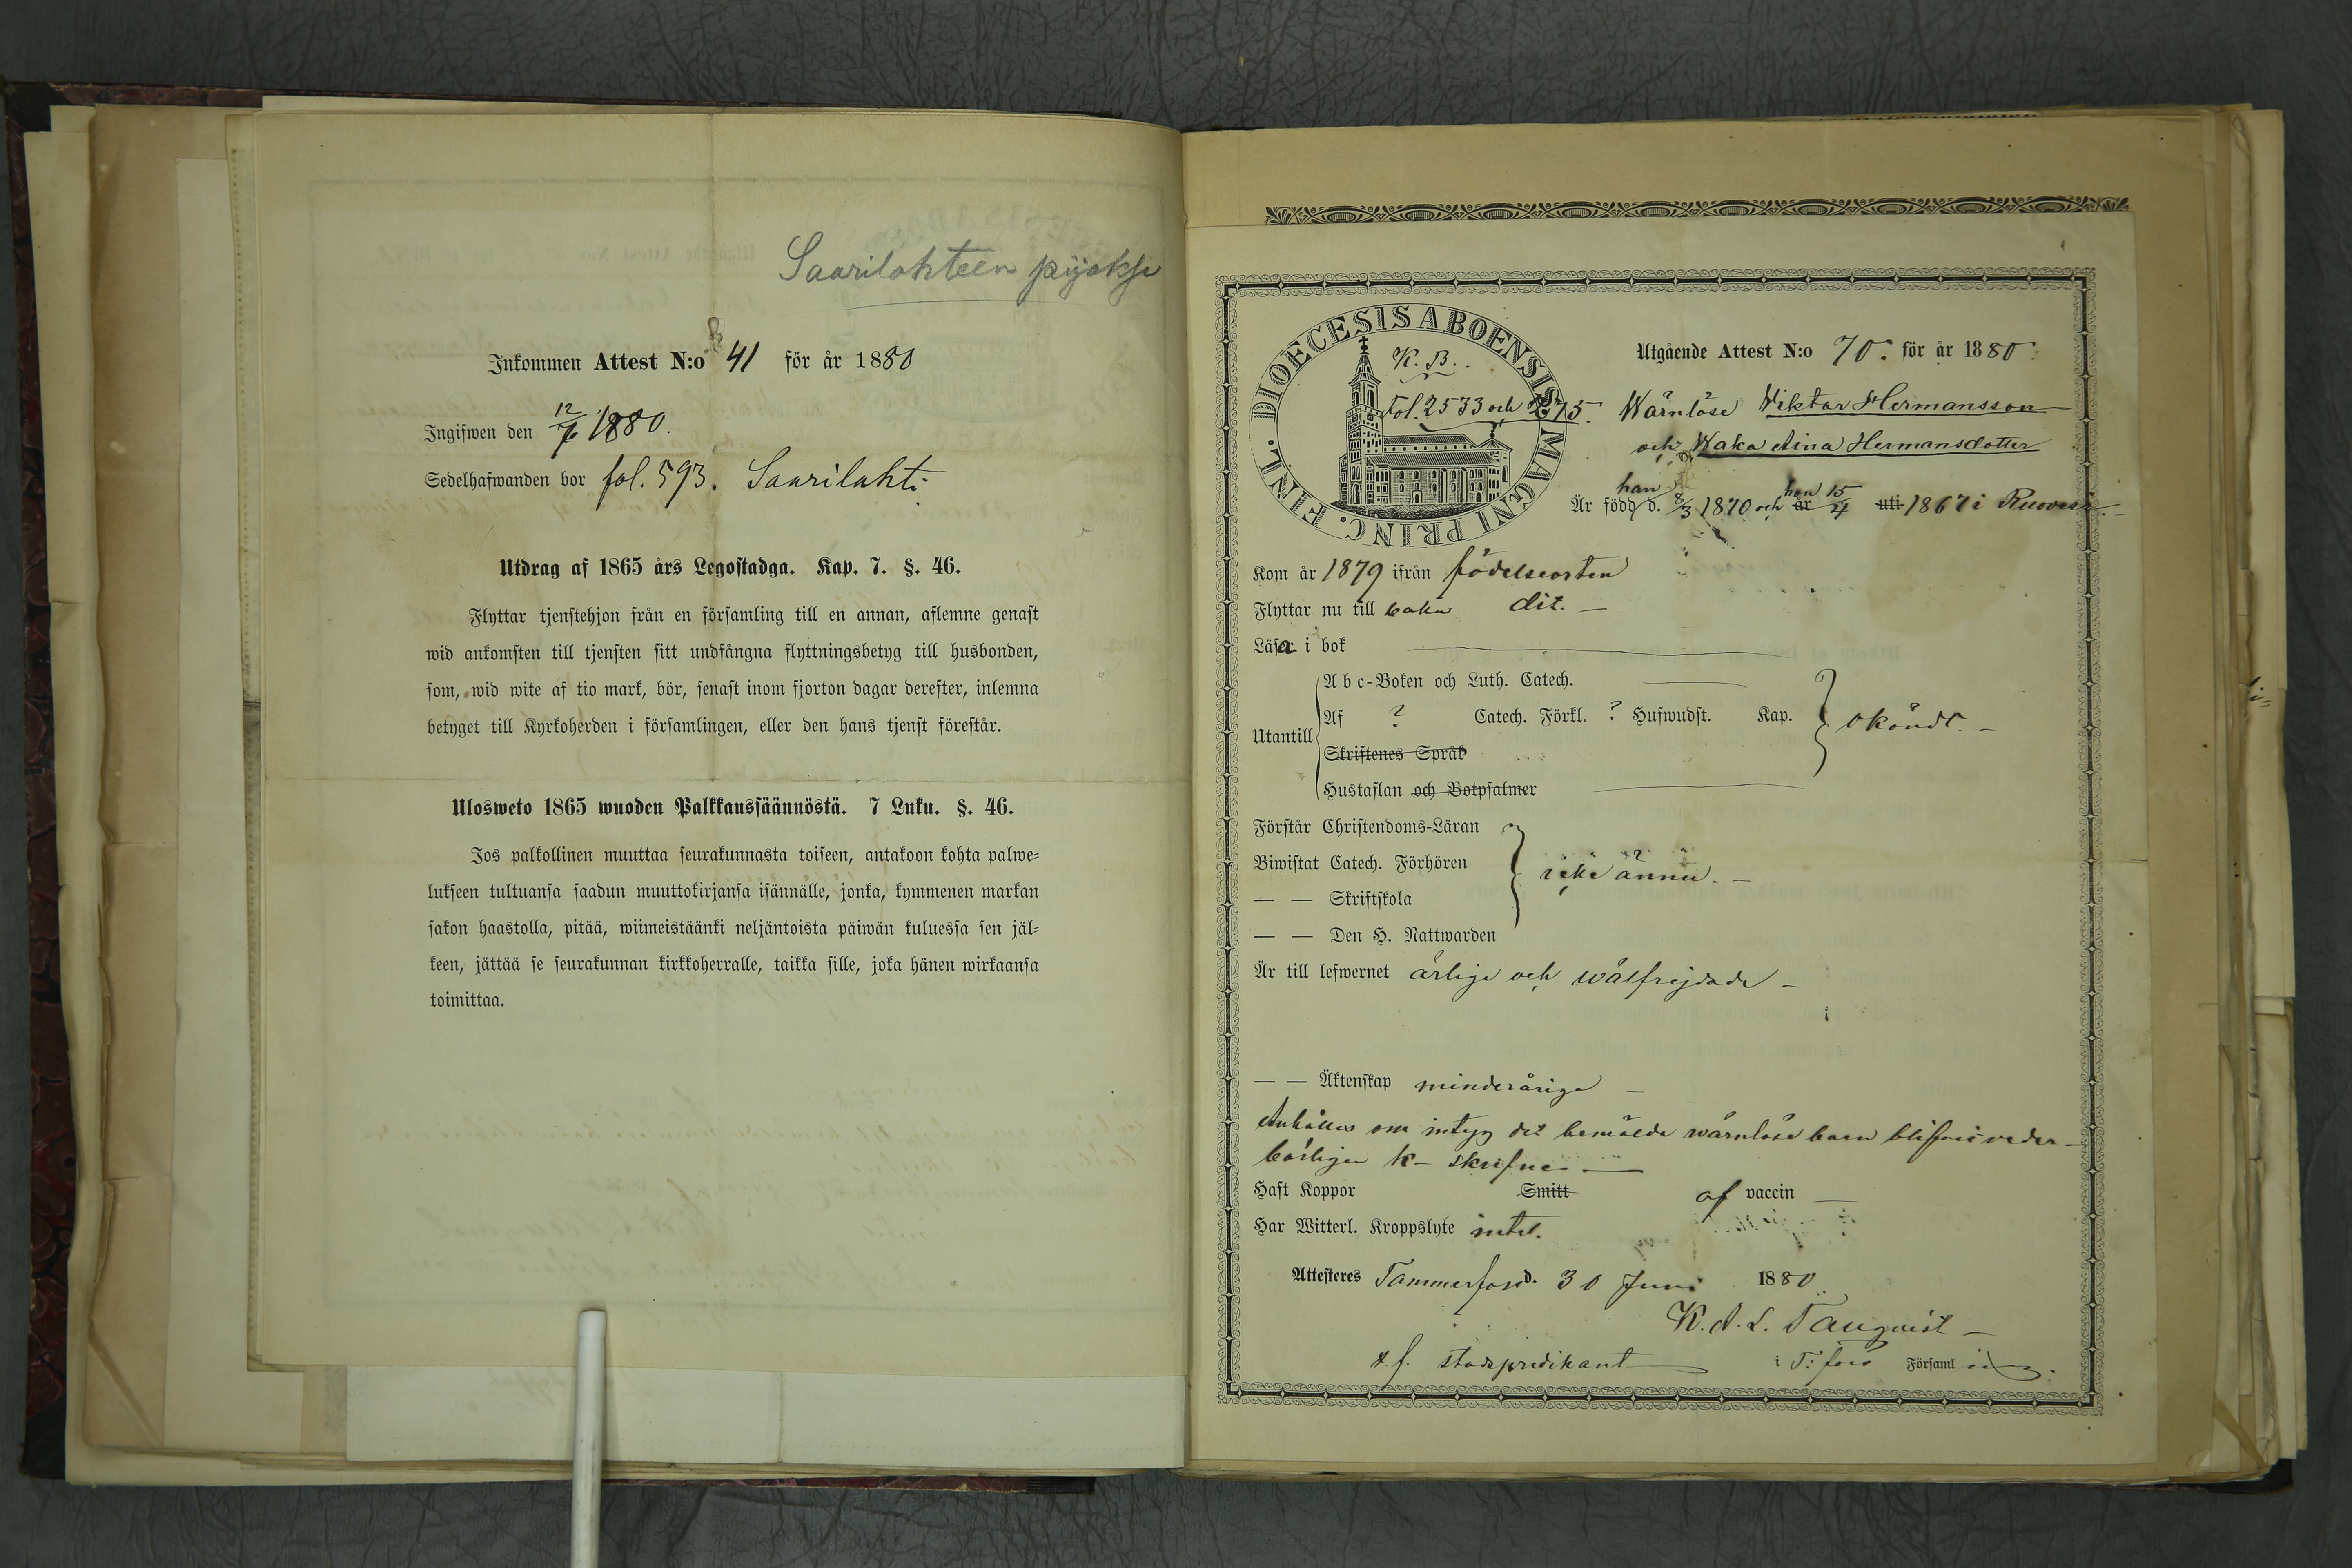 Saarilahteen piijaksi
Inkommen Attest N:o 41 för år 1880
Ingifwen den 12/7 1880.
Sedelhafwanden bor fol. 593. Saarilahti
Utdrag af 1865 års Legostadga. Kap. 7. §. 46.
Flyttar tjenstehjon från en församling till en annan, aflemne genast
wid ankomsten till tjensten sitt undfångna flyttningsbetyg till husbonden,
som, wid wite af tio mark, bör, senast inom fjorton dagar derefter, inlemna
betyget till Kyrkoherden i församlingen, eller den hans tjenst förestår.
Ulosweto 1865 wuoden Palkkaussäännöstä. 7 Luku. §. 46.
Jos palkollinen muuttaa seurakunnasta toiseen, antakoon kohta palwe=
lukseen tultuansa saadun muuttokirjansa isännälle, jonka, kymmenen markan
sakon haastolla, pitää, wiimeistäänki neljäntoista päiwän kuluessa sen jäl=
keen, jättää se seurakunnan kirkkoherralle, taikka sille, joka hänen wirkaansa
toimittaa.
DIOECESIS ABOENSIS MAGNI PRINC. FINL.
K. B.
Fol. 2533 och
Utgående Attest N:o 70. för år 1880.
Wärnlöse Viktor Hermansson
och Waka Aina Hermansdotter
han hon 15
Är född d. 8/3 1870 och är 4 uti 1867 i Ruovesi.
Kom år 1879 ifrån födelseorten
Flyttar nu till baka dit. —
Läsa i bok
Abc-Boken och Luth. Catech.
Utantill Af ? Catech. Förkl. ? Hufwudst. Kap. okändt. —
Skriftenes Språk
Hustaflan och Botpsalmer
Förstår Christendoms-Läran
Biwistat Catech. Förhören icke ännu. —
— — Skriftskola
— — Den H. Nattwarden
Är till lefwernet ärlige och wälfrejdade —
— — Äktenskap minderåriga —
Anhålles om intyg det bemälde wärnlöse barn blifvit veder-
börligen k- skrifne —
Haft Koppor Smitt af vaccin —
Har Witterl. Kroppslyte intet.
Attesteres Tammerfors d. 30 Juni 1880
K. A. L. Tauqvist —
t. f. stadspredikant i T:fors Församling.